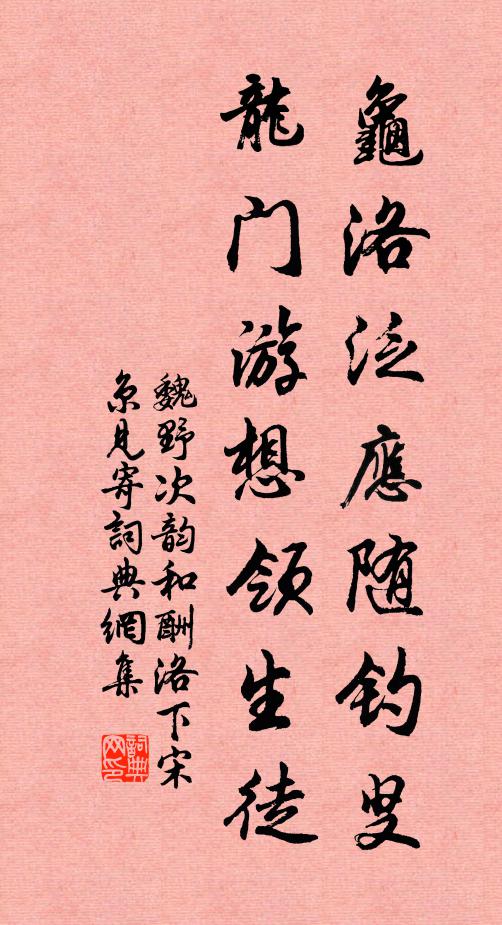 龜洛泛應随钓叟
龍门游想领生徒
魏野次韵和酬洛下宋
京見寄詞典網集
詞典网印